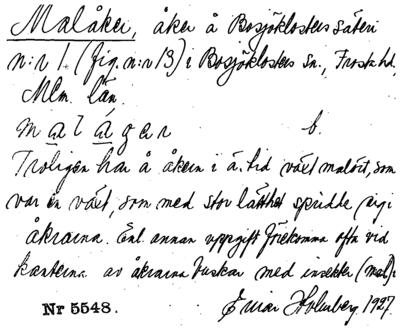 Malåker, åker å Bosjöklosters säteri
n:r 1. (fig. n:r 13) i Bosjöklosters sn., Frosta hd,
Mlm. län.
malágar b.
Troligen har å åkern i ä. tid växt malört, som
var en växt, som med stor lätthet spridde sig i
åkrarna. Enl. annan uppgift förekomma ofta vid
kanterna av åkrarna buskar med insekter (mal).
Nr 5548. Einar Holmberg 1927.